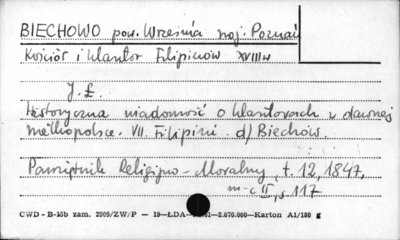 BIECHOWO pow. Września woj. Poznań
Kościół i klasztor Filipinów XVIII w
J. Ł.
Historyczna wiadomość o klasztorach w dawnej
wielkopolsce. VII. Filipini. d) Biechów.
Pamiętnik Religijno - Moralny, t. 12, 1847,
m-c II, s. 117
CWD - B-15b zam. 2309/ZW/P — 19—ŁDA— 61—2.070.000—Karton A1/180 g